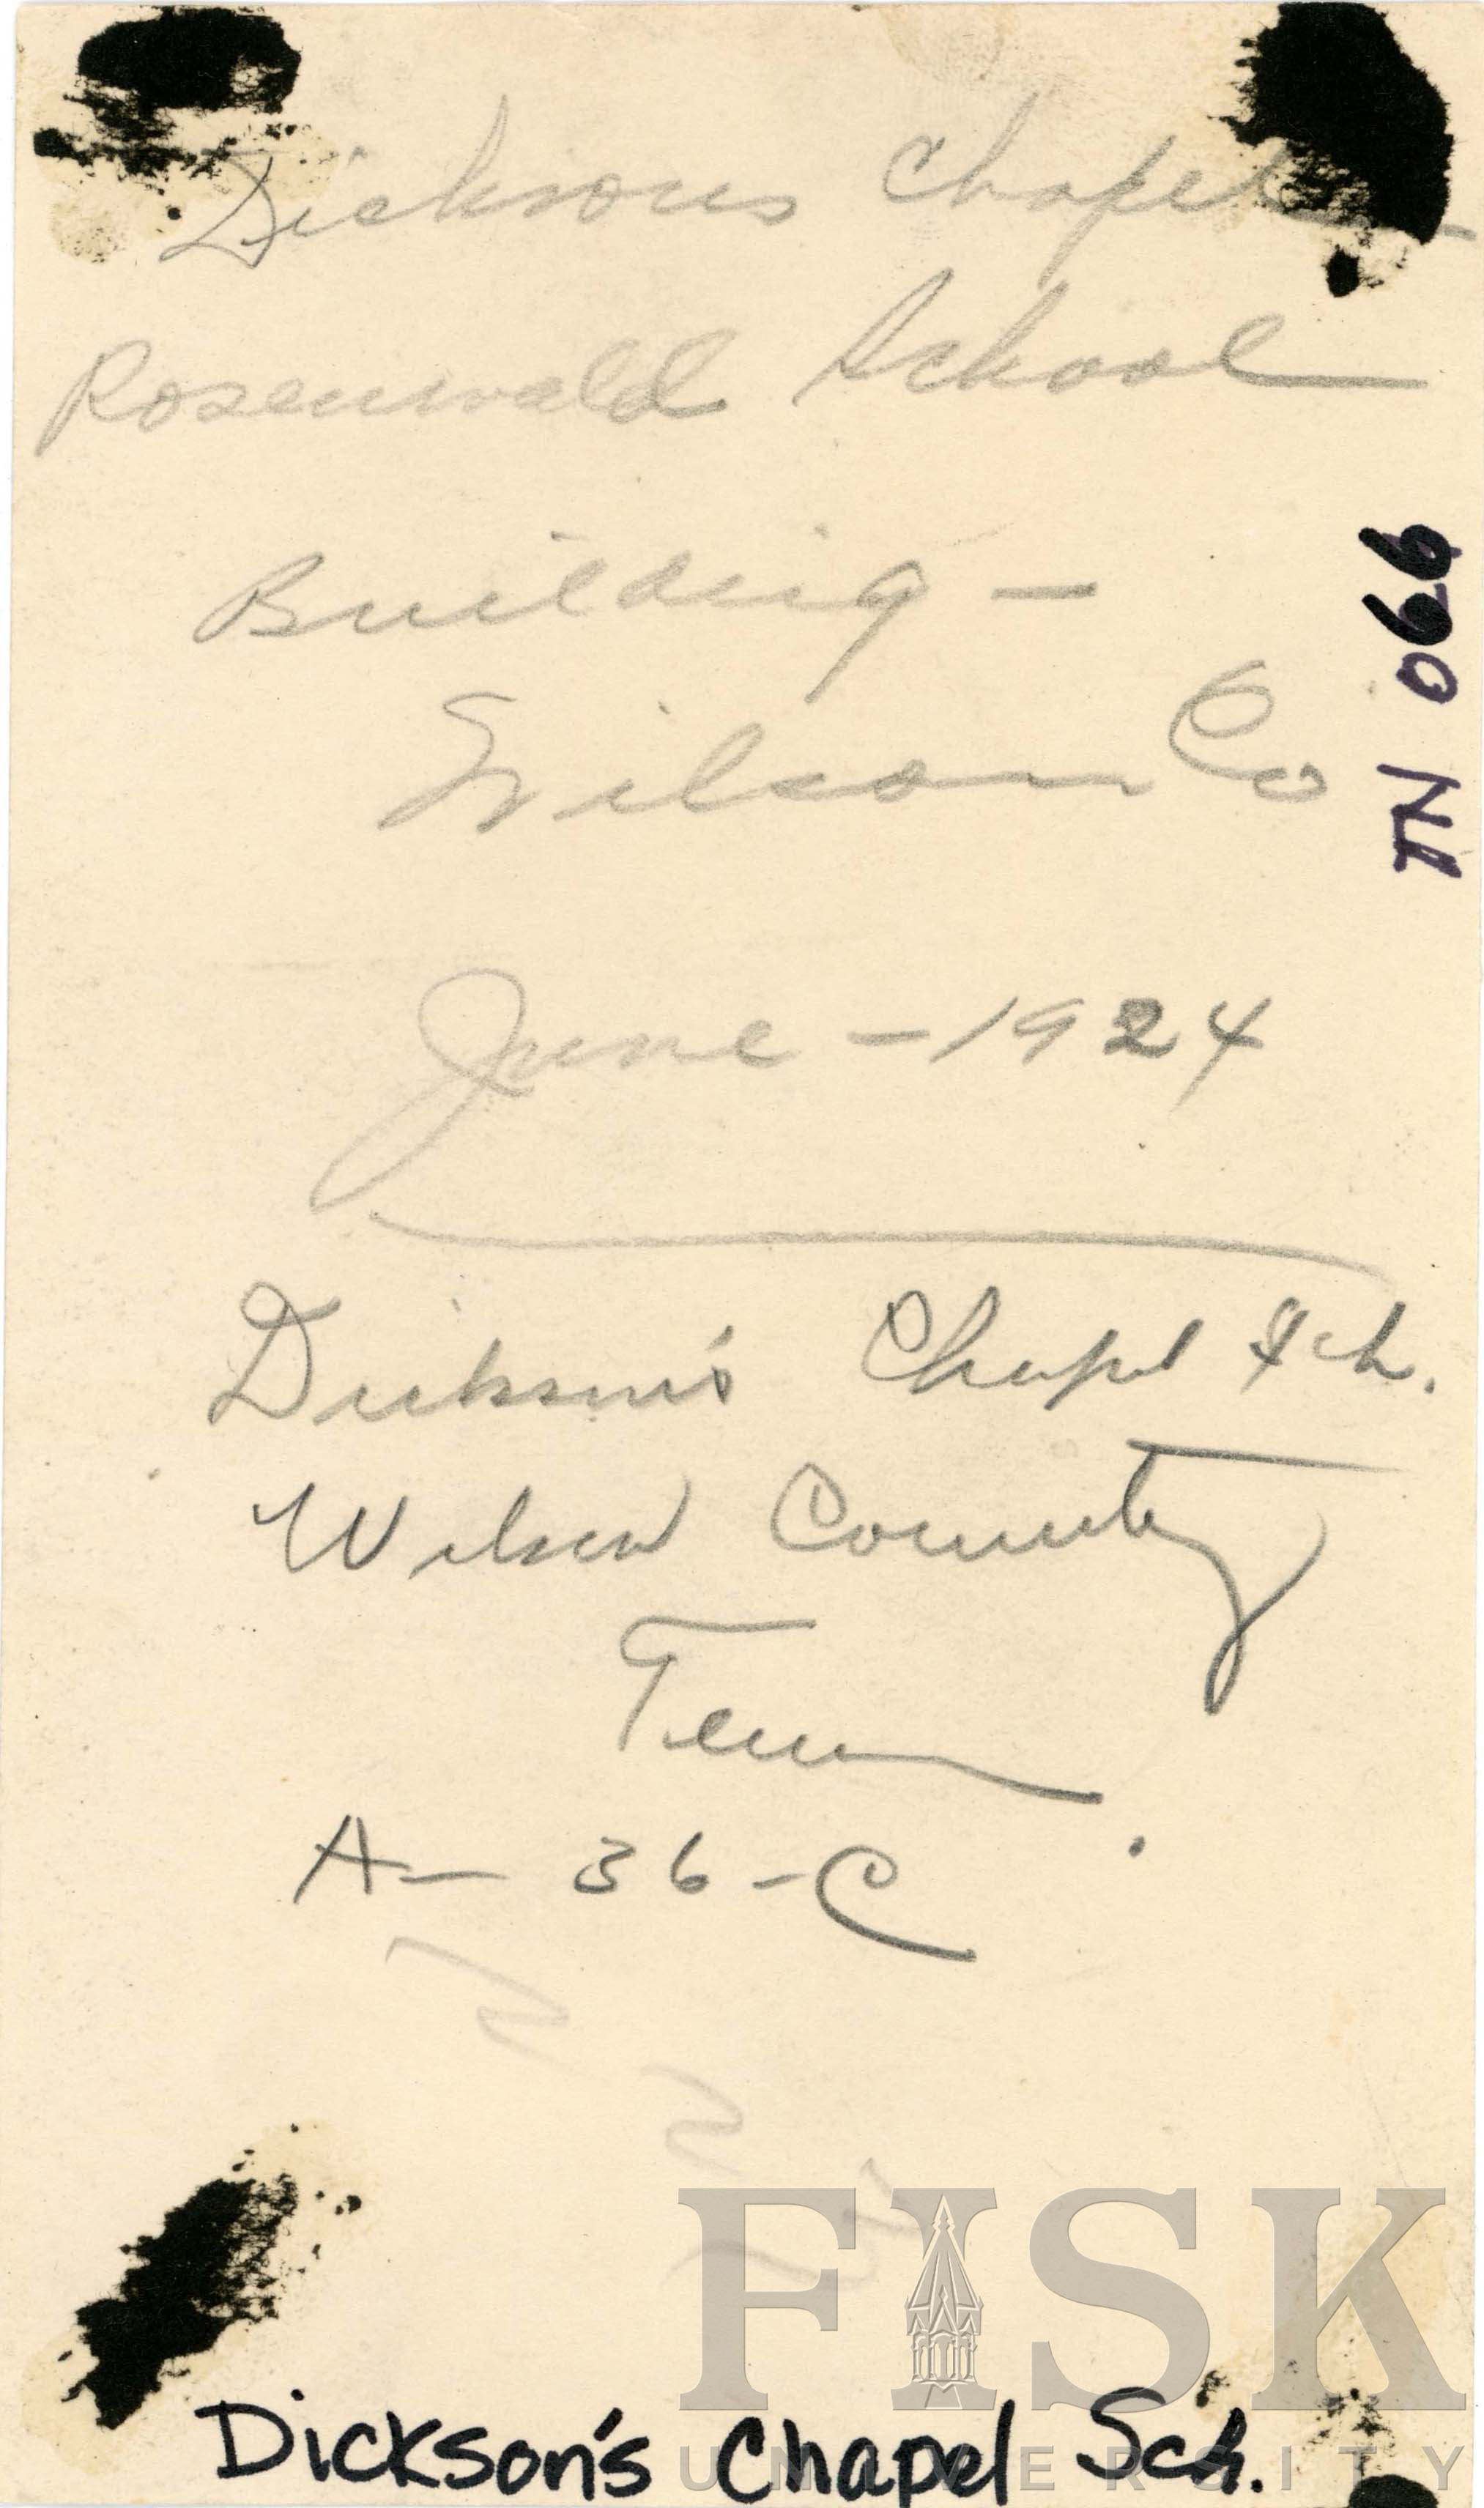 Dicksons Chapel
Rosenwald School
Building -
Wilson Co
TN 066
June - 1924
Dickson's Chapel Sch.
Wilson County
Tenn.
A- 36 -C
FISK
UNIVERSITY
Dickson's Chapel Sch.